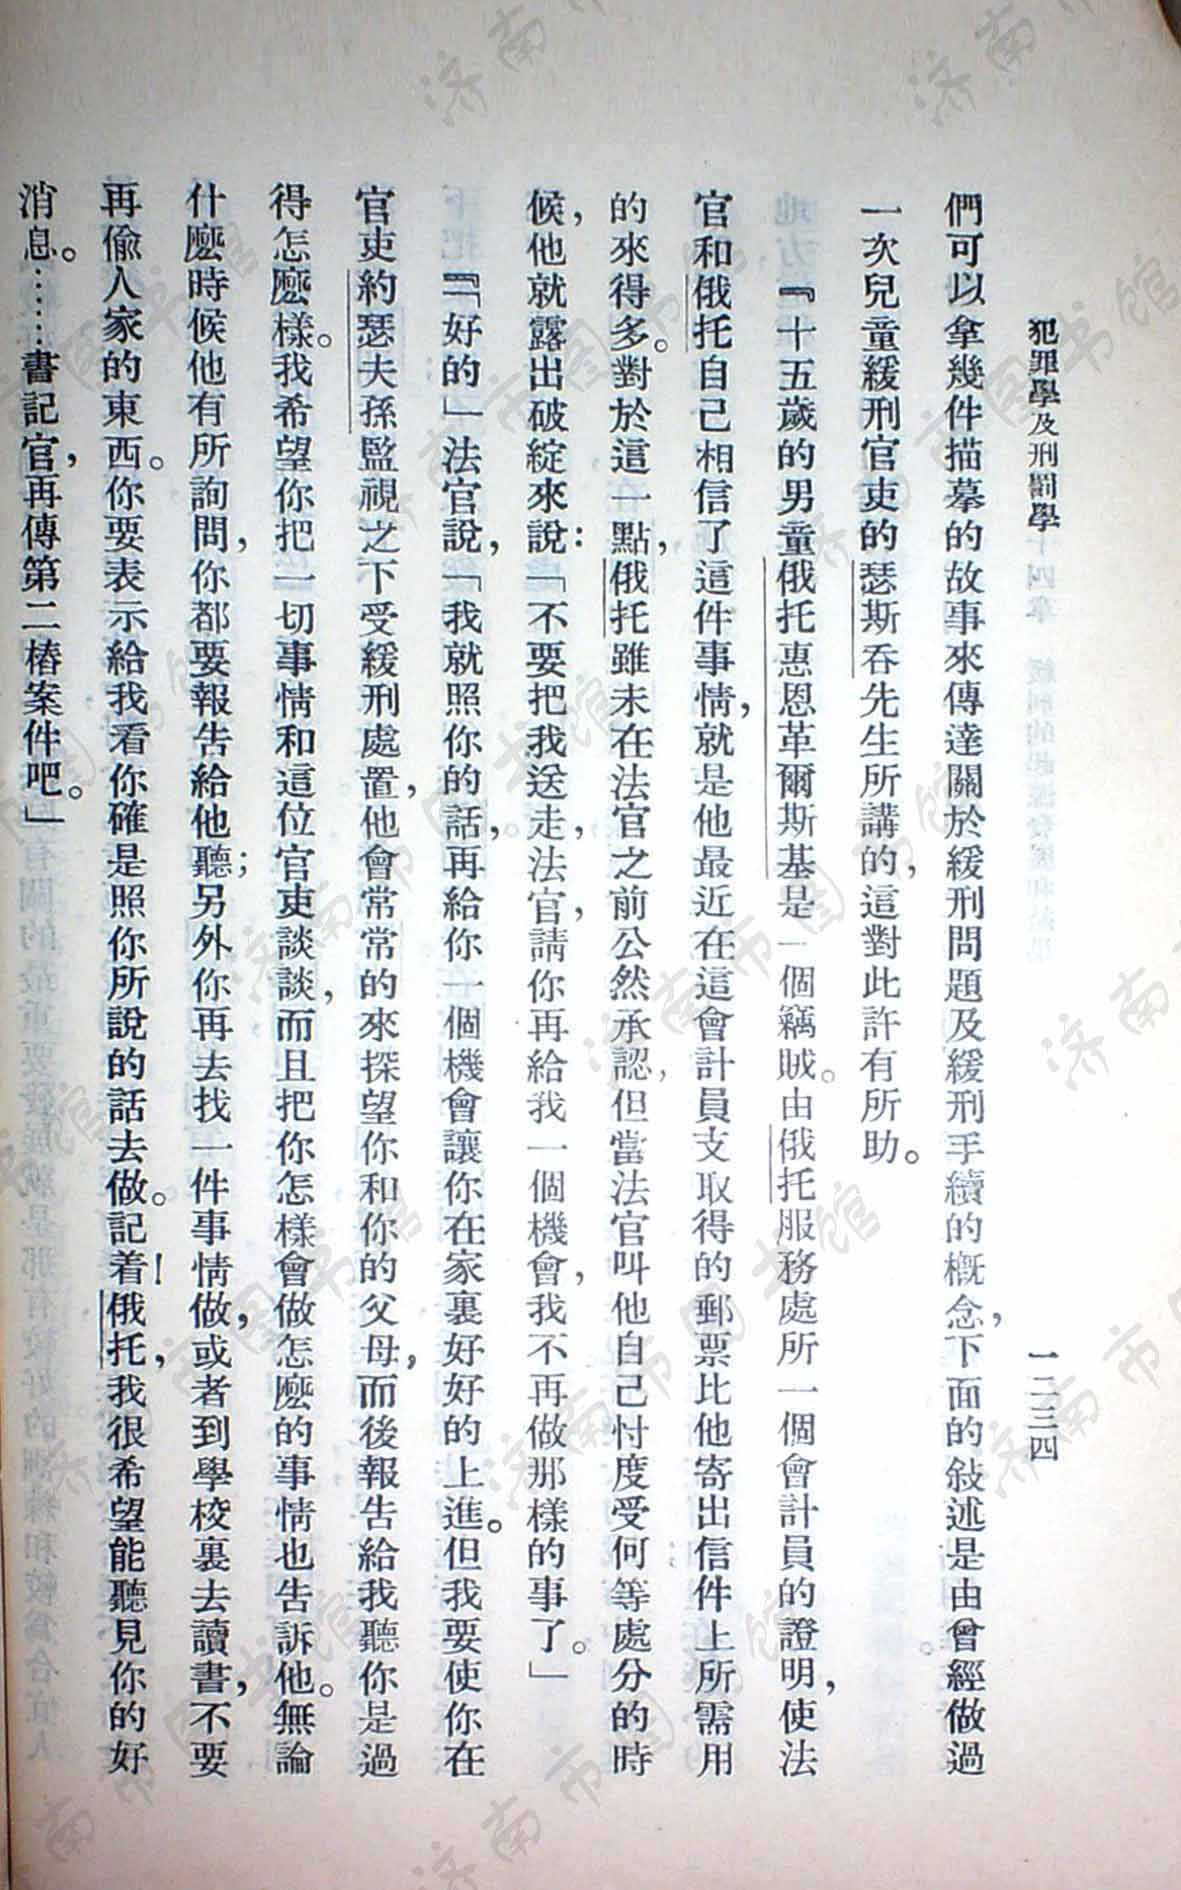 犯罪學及刑罰學
一二三四
們可以拿幾件描摹的故事來傳達關於緩刑問題及緩刑手續的概念，下面的敍述是由曾經做過
一次兒童緩刑官吏的瑟斯吞先生所講的，這對此許有所助。
『十五歲的男童俄托惠恩革爾斯基是一個竊賊。由俄托服務處所一個會計員的證明，使法
官和俄托自己相信了這件事情，就是他最近在這會計員支取得的郵票比他寄出信件上所需用
的來得多。對於這一點，俄托雖未在法官之前公然承認，但當法官叫他自己忖度受何等處分的時
候，他就露出破綻來說：「不要把我送走，法官，請你再給我一個機會，我不再做那樣的事了。」
『「好的」法官說，「我就照你的話，再給你一個機會讓你在家裏好好的上進。但我要使你在
官吏約瑟夫孫監視之下受緩刑處置，他會常常的來探望你和你的父母，而後報告給我聽你是過
得怎麼樣。我希望你把一切事情和這位官吏談談，而且把你怎樣會做怎麼的事情也告訴他。無論
什麼時候他有所詢問，你都要報告給他聽；另外你再去找一件事情做，或者到學校裏去讀書，不要
再偷人家的東西。你要表示給我看你確是照你所說的話去做。記着！俄托，我很希望能聽見你的好
消息。……書記官，再傳第二樁案件吧。」
济南市图书馆